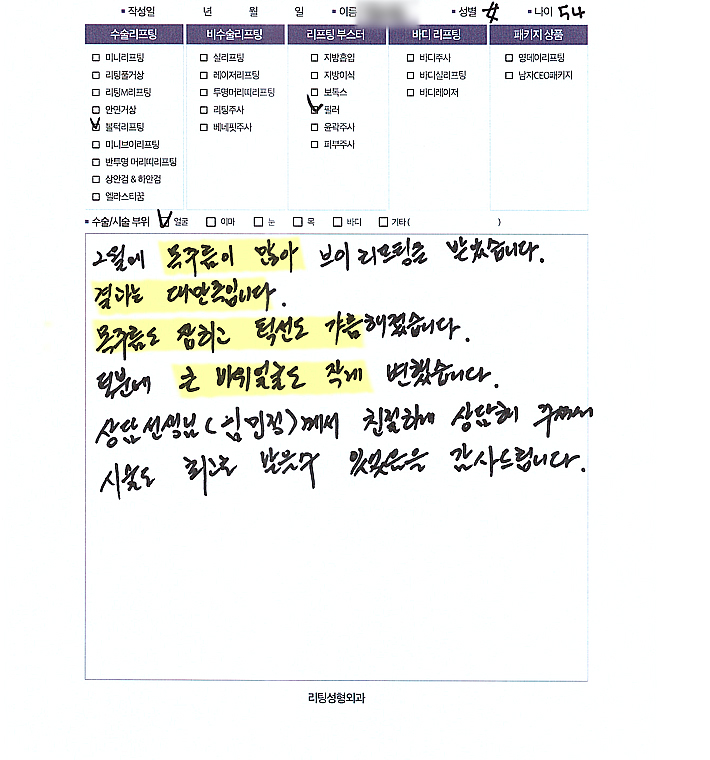 ▪ 작성일 년 월 일 ▪ 이름 ▪ 성별 女 ▪ 나이 54
수술리프팅 비수술리프팅 리프팅 부스터 바디 리프팅 패키지 상품
미니리프팅 실리프팅 지방흡입 바디주사 명데이리프팅
리팅풀거상 레이저리프팅 지방이식 바디실리프팅 남자CEO패키지
리팅M리프팅 투명머리띠리프팅 보톡스 바디레이저
안면거상 리팅주사 필러
불턱리프팅 베네핏주사 윤곽주사
미니브이리프팅 피부주사
반투명 머리띠리프팅
상안검 & 하안검
엘라스티꿈
▪ 수술/시술 부위 얼굴 이마 눈 목 바디 기타 ( )
2월에 목주름이 많아 브이리프팅을 받았습니다.
결과는 대만족입니다.
목주름도 잡히고 턱선도 갸름해졌습니다.
덕분에 큰 바위얼굴도 작게 변했습니다.
상담선생님( )께서 친절하게 상담해 주셔서
시술도 최고로 받을수 있었음을 감사드립니다.
리팅성형외과